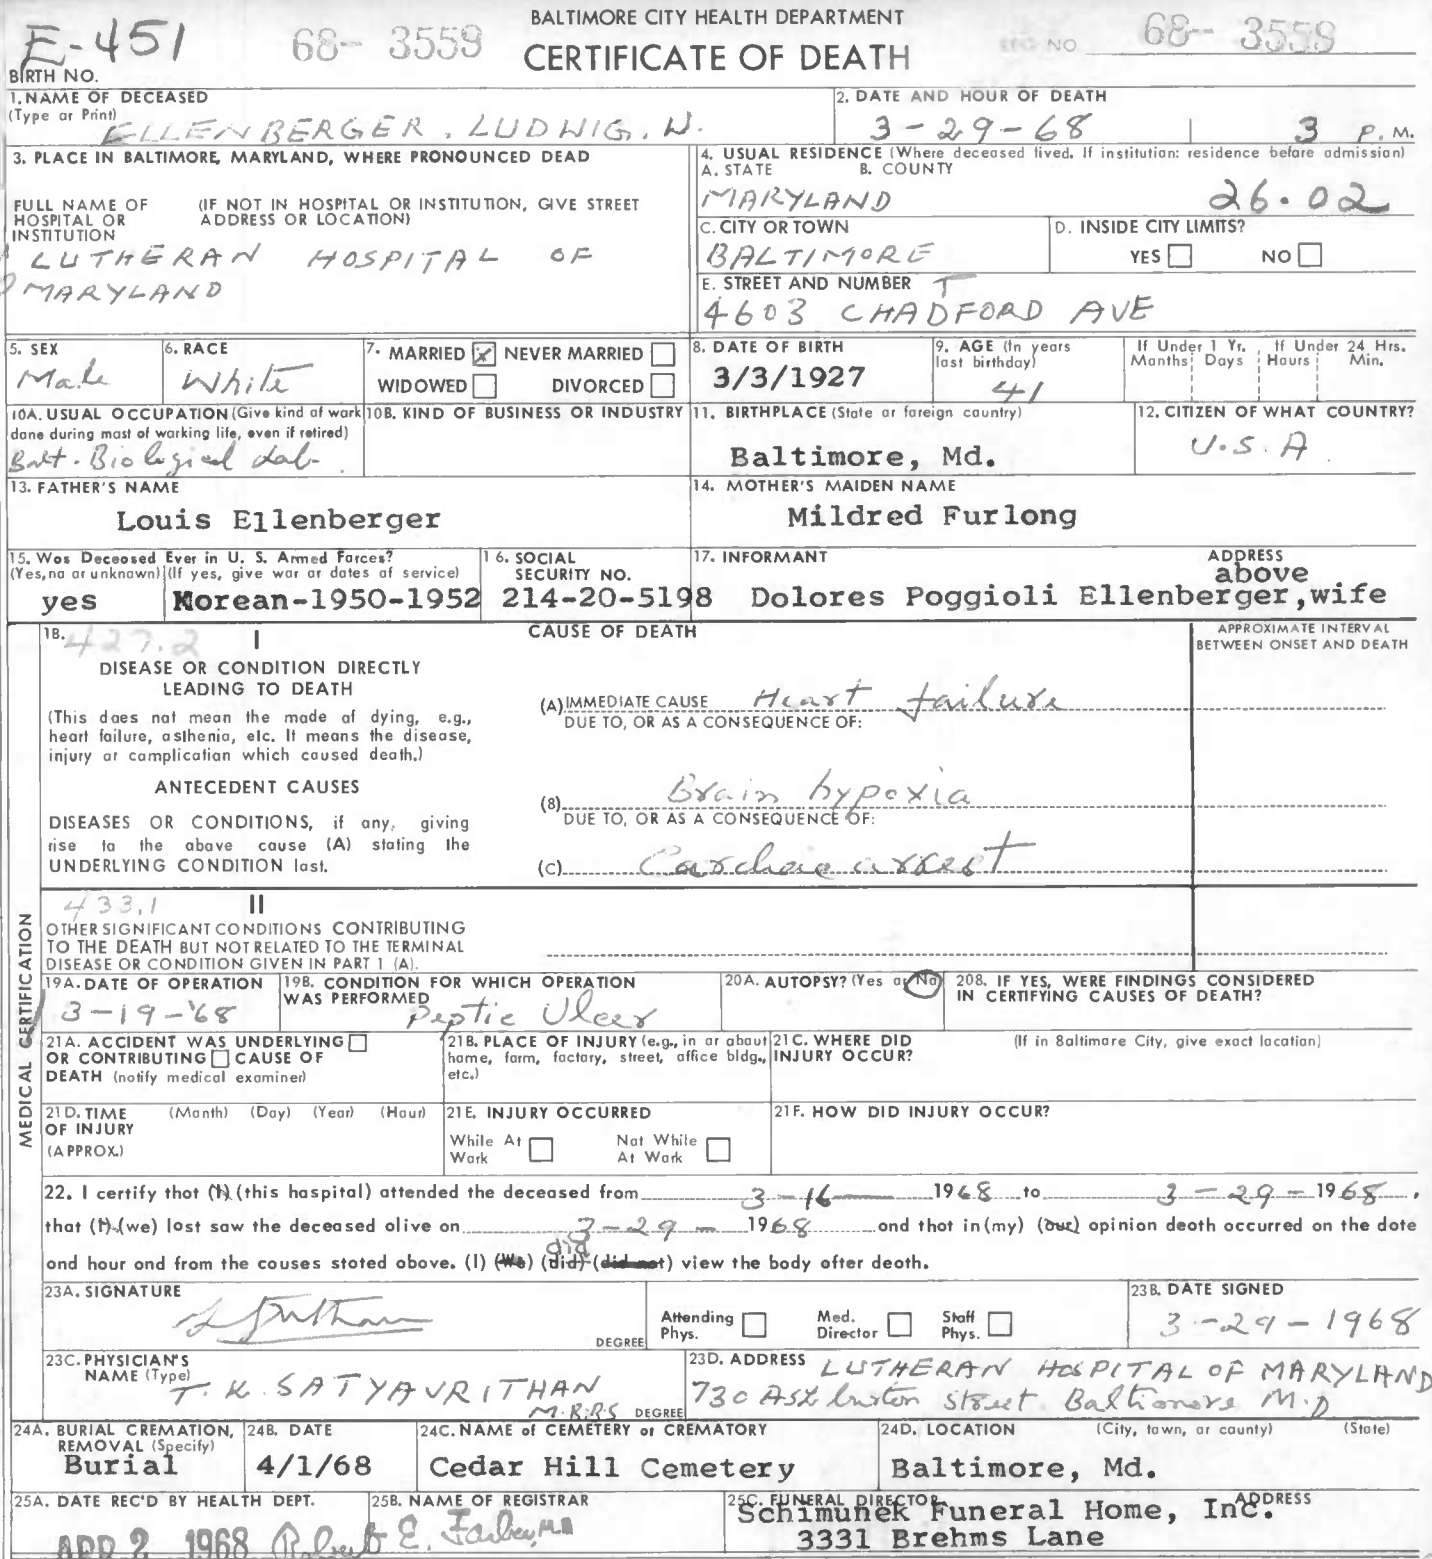 BALTIMORE CITY HEALTH DEPARTMENT
CERTIFICATE OF DEATH
E-451
68-- 3559
REG NO. 68-- 3559
BIRTH NO.
1. NAME OF DECEASED
(Type or Print)
ELLENBERGER, LUDWIG, W.
2. DATE AND HOUR OF DEATH
3-29-68 3 P.M.
3. PLACE IN BALTIMORE, MARYLAND, WHERE PRONOUNCED DEAD
FULL NAME OF HOSPITAL OR INSTITUTION
(IF NOT IN HOSPITAL OR INSTITUTION, GIVE STREET ADDRESS OR LOCATION)
LUTHERAN HOSPITAL OF
MARYLAND
4. USUAL RESIDENCE (Where deceased lived. If institution: residence before admission)
A. STATE B. COUNTY
MARYLAND 26.02
C. CITY OR TOWN
BALTIMORE
D. INSIDE CITY LIMITS?
YES NO
E. STREET AND NUMBER T
4603 CHADFORD AVE
5. SEX
Male
6. RACE
White
7. MARRIED NEVER MARRIED
WIDOWED DIVORCED
8. DATE OF BIRTH
3/3/1927
9. AGE (In years last birthday)
41
If Under 1 Yr. If Under 24 Hrs.
Months Days Hours Min.
10A. USUAL OCCUPATION (Give kind of work
done during most of working life, even if retired)
Balt. Biological Lab.
10B. KIND OF BUSINESS OR INDUSTRY
11. BIRTHPLACE (State or foreign country)
Baltimore, Md.
12. CITIZEN OF WHAT COUNTRY?
U.S.A
13. FATHER'S NAME
Louis Ellenberger
14. MOTHER'S MAIDEN NAME
Mildred Furlong
15. Was Deceased Ever in U. S. Armed Forces?
(Yes, no or unknown) (If yes, give war or dates of service)
yes Korean-1950-1952
16. SOCIAL SECURITY NO.
214-20-5198
17. INFORMANT ADDRESS
above
Dolores Poggioli Ellenberger, wife
18. 427.2 I
CAUSE OF DEATH
APPROXIMATE INTERVAL
BETWEEN ONSET AND DEATH
DISEASE OR CONDITION DIRECTLY
LEADING TO DEATH
(This does not mean the mode of dying, e.g.,
heart failure, asthenia, etc. It means the disease,
injury or complication which caused death.)
(A) IMMEDIATE CAUSE Heart failure
DUE TO, OR AS A CONSEQUENCE OF:
ANTECEDENT CAUSES
DISEASES OR CONDITIONS, if any, giving
rise to the above cause (A) stating the
UNDERLYING CONDITION last.
(B) Brain hypoxia
DUE TO, OR AS A CONSEQUENCE OF:
(C) Cardiac arrest
433.1 II
OTHER SIGNIFICANT CONDITIONS CONTRIBUTING
TO THE DEATH BUT NOT RELATED TO THE TERMINAL
DISEASE OR CONDITION GIVEN IN PART 1 (A).
MEDICAL CERTIFICATION
19A. DATE OF OPERATION
3-19-'68
19B. CONDITION FOR WHICH OPERATION
WAS PERFORMED
Peptic Ulcer
20A. AUTOPSY? (Yes or No)
20B. IF YES, WERE FINDINGS CONSIDERED
IN CERTIFYING CAUSES OF DEATH?
21A. ACCIDENT WAS UNDERLYING
OR CONTRIBUTING CAUSE OF
DEATH (notify medical examiner)
21B. PLACE OF INJURY (e.g., in or about
home, farm, factory, street, office bldg.,
etc.)
21C. WHERE DID
INJURY OCCUR?
(If in Baltimore City, give exact location)
21D. TIME (Month) (Day) (Year) (Hour)
OF INJURY
(APPROX.)
21E. INJURY OCCURRED
While At Work Not While At Work
21F. HOW DID INJURY OCCUR?
22. I certify that (I) (this hospital) attended the deceased from 3-16- 1968 to 3-29-1968,
that (I) (we) last saw the deceased alive on 3-29- 1968 and that in (my) (our) opinion death occurred on the date
did
and hour and from the causes stated above. (I) (We) (did) (did not) view the body after death.
23A. SIGNATURE
DEGREE
Attending Phys. Med. Director Staff Phys.
23B. DATE SIGNED
3-29-1968
23C. PHYSICIAN'S
NAME (Type)
T. K. SATYAVRITHAN
M.B.B.S DEGREE
23D. ADDRESS LUTHERAN HOSPITAL OF MARYLAND
730 Ashburton Street Baltimore M.D
24A. BURIAL CREMATION,
REMOVAL (Specify)
Burial
24B. DATE
4/1/68
24C. NAME of CEMETERY or CREMATORY
Cedar Hill Cemetery
24D. LOCATION (City, town, or county) (State)
Baltimore, Md.
25A. DATE REC'D BY HEALTH DEPT.
APR 2 1968
25B. NAME OF REGISTRAR
Robert E. Farber, M.D.
25C. FUNERAL DIRECTOR ADDRESS
Schimunek Funeral Home, Inc.
3331 Brehms Lane